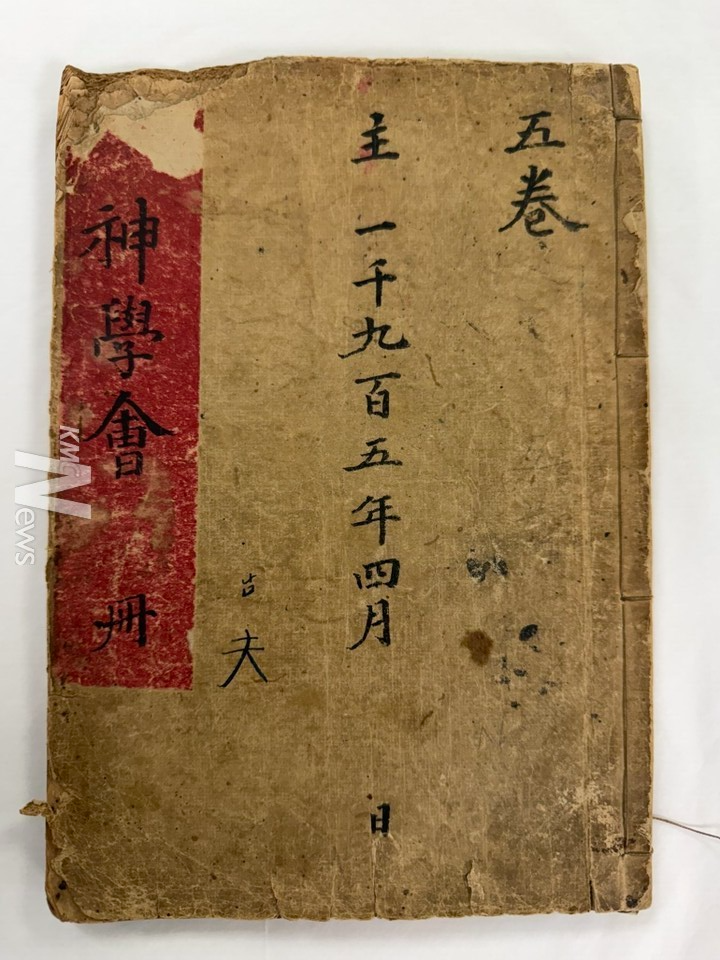 五卷
主 一千九百五年四月 日
古
夫
神學會 冊
KMC News